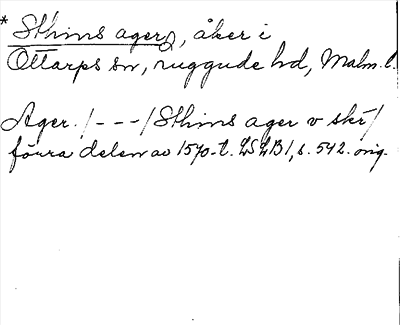 * Sthins ager, åker i
Ottarps sn, ruggude hd, Malm. l.
Ager. /---/ Sthins ager v skr/
förra delen av 1570-t. LSLB1, s. 542. orig.